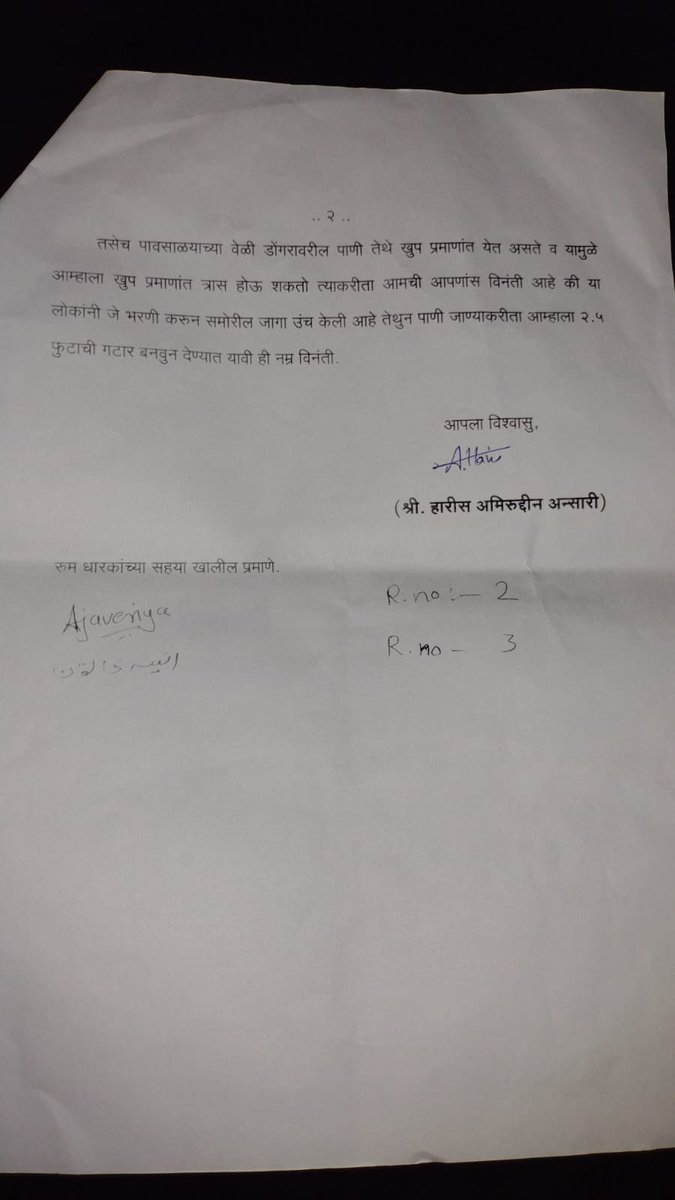 .. २ ..
तसेच पावसाळयाच्या वेळी डोंगरावरील पाणी तेथे खुप प्रमाणांत येत असते व यामुळे
आम्हाला खुप प्रमाणांत त्रास होऊ शकतो त्याकरीता आमची आपणांस विनंती आहे की या
लोकांनी जे भरणी करुन समोरील जागा उंच केली आहे तेथुन पाणी जाण्याकरीता आम्हाला २.५
फुटाची गटार बनवुन देण्यात यावी ही नम्र विनंती.
आपला विश्वासु,
(श्री. हारीस अमिरुद्दीन अन्सारी)
रुम धारकांच्या सहया खालील प्रमाणे.
Ajaveriya R.no :- 2
R.no - 3